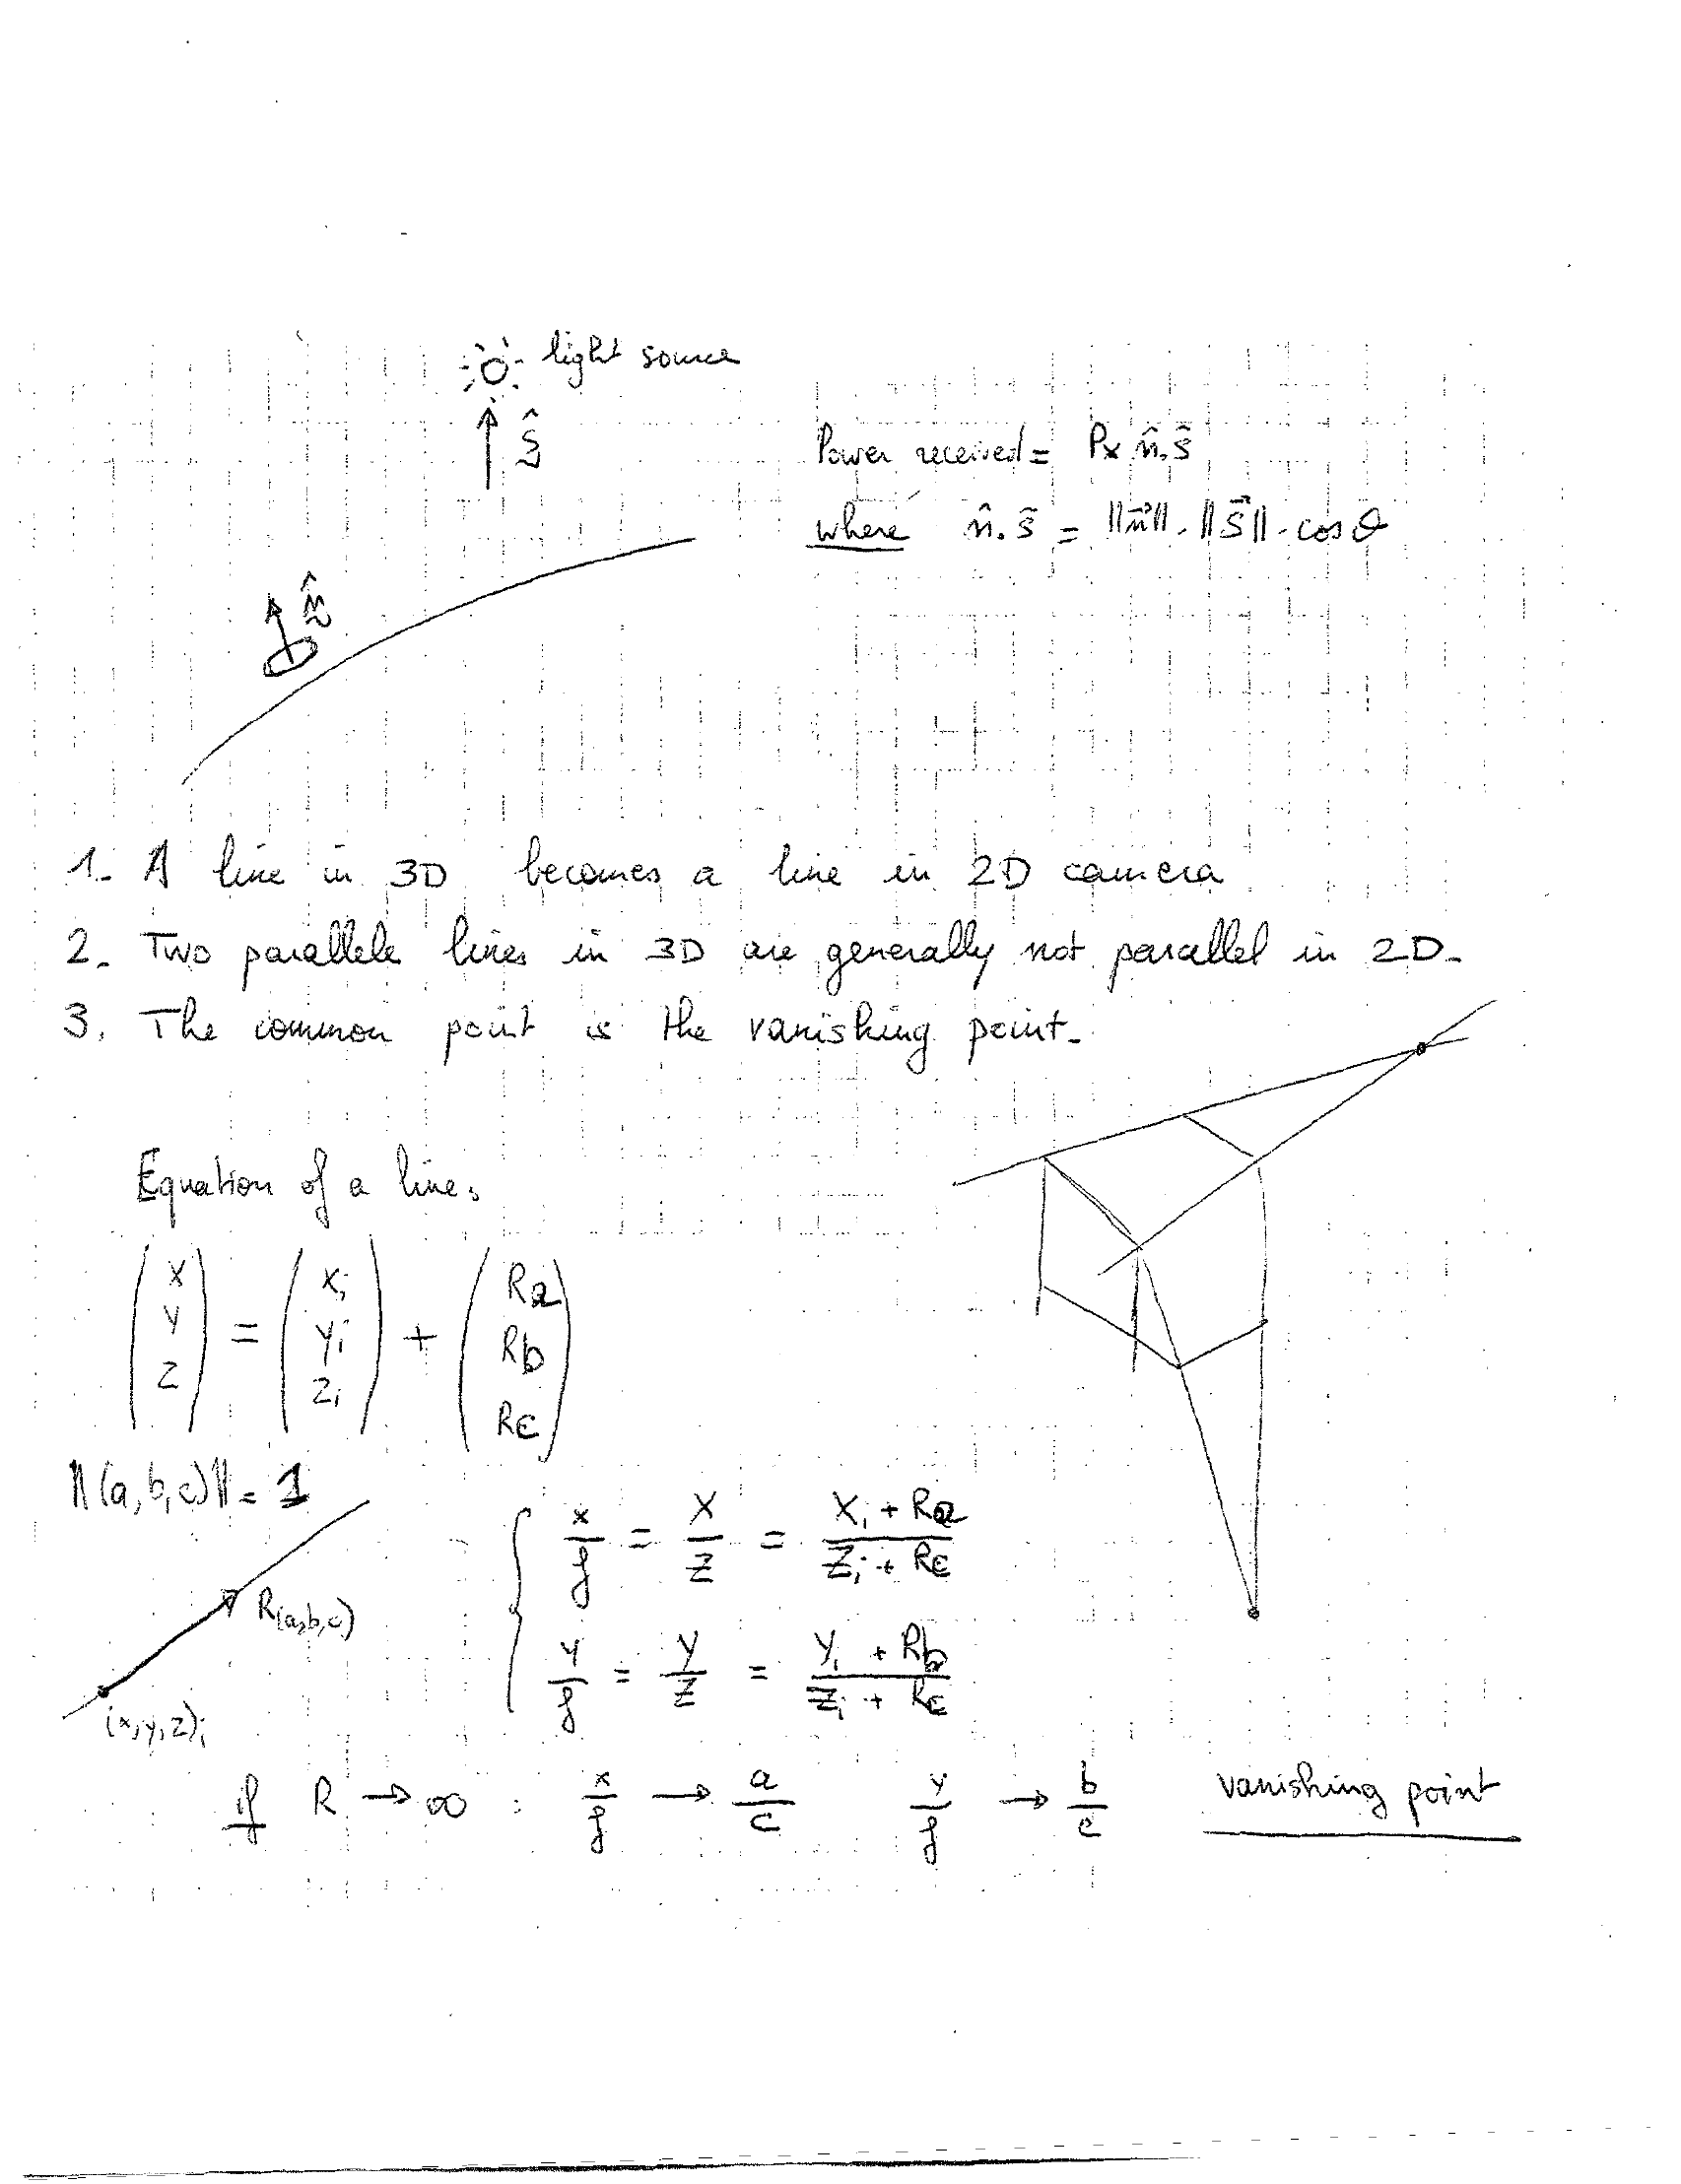 light source
ŝ
Power received = P× n̂.ŝ
where n̂.ŝ = ||n⃗||.||S⃗||.cosθ
n̂
1. A line in 3D becomes a line in 2D camera
2. Two parallele lines in 3D are generally not parallel in 2D.
3. The common point is the vanishing point.
Equation of a line:
(X Y Z) = (xi yi zi) + (Ra Rb Rc)
||(a,b,c)|| = 1
x/f = X/Z = (Xi + Ra)/(Zi + Rc)
R(a,b,c)
y/f = Y/Z = (Yi + Rb)/(Zi + Rc)
(x,y,z)i
if R → ∞ : x/f → a/c y/f → b/c vanishing point